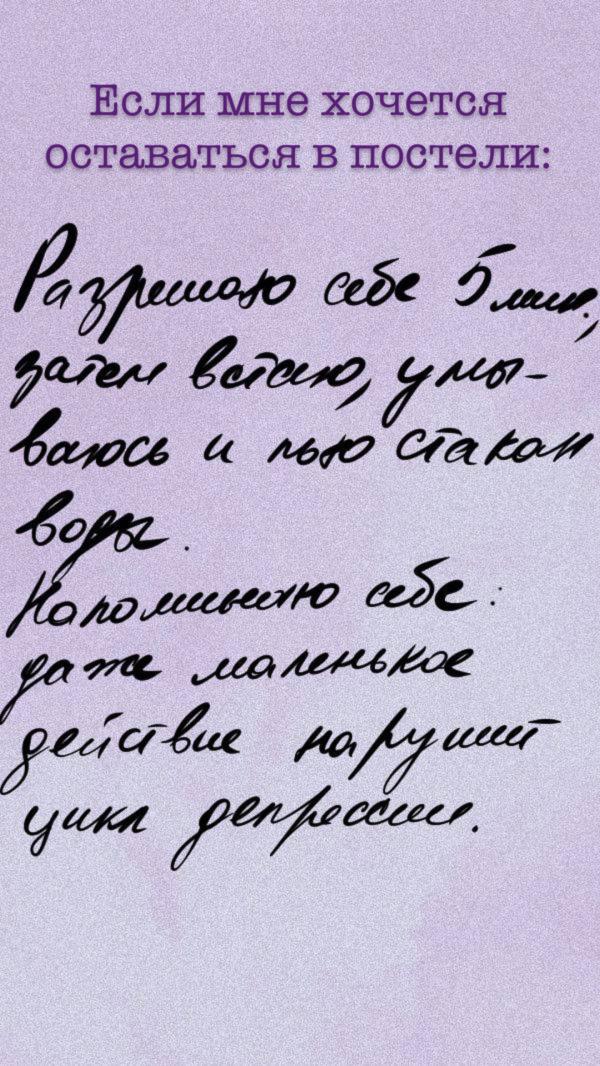 Если мне хочется
оставаться в постели:
Разрешаю себе 5 мин.,
затем встаю, умы-
ваюсь и пью стакан
воды.
Напоминаю себе:
даже маленькое
действие нарушит
цикл депрессии.